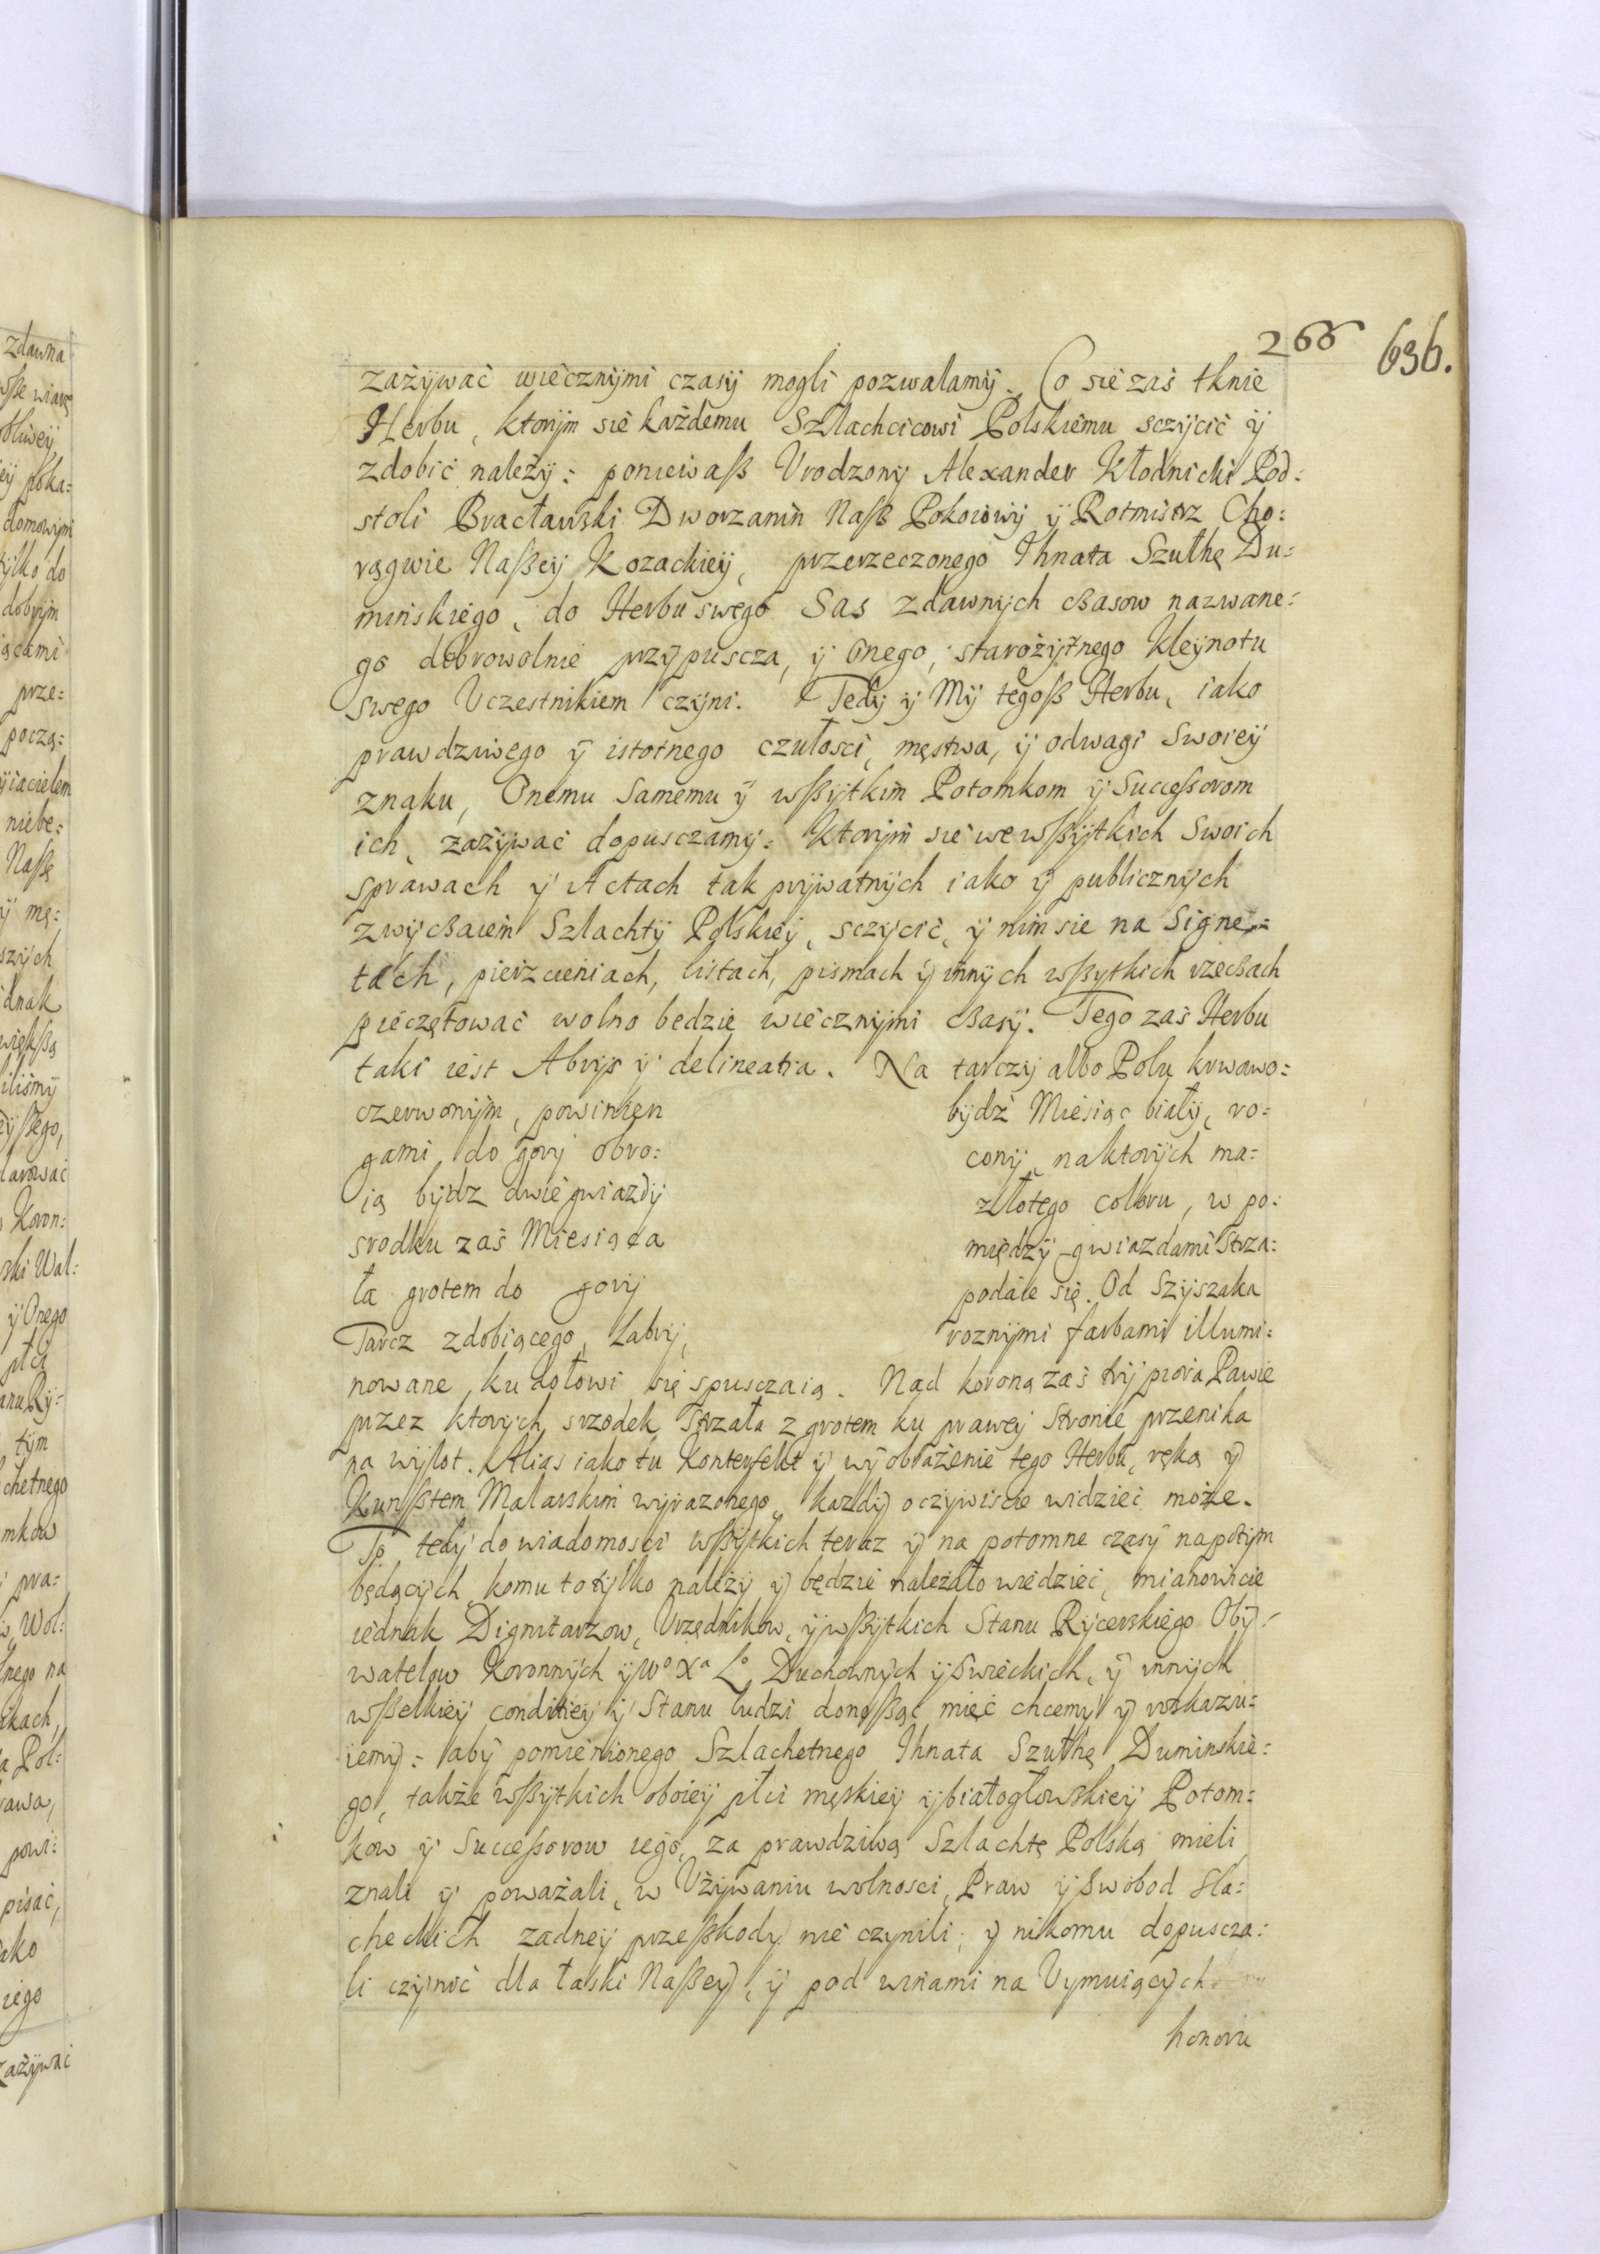 266 636.
zażywać wiecznymi czasy mogli pozwalamy. Co sie zaś tknie
Herbu, ktorym sie każdemu Szlachcicowi Polskiemu sczycić y
zdobić należy: ponieważ Vrodzony Alexander Kłodnicki Pod=
stoli Bracławski Dworzanin Naß Pokoiowy y Rotmistrz Cho=
rągwie Naßey Kozackiey, przerzeczonego Ihnata Szułhę Du=
minskiego, do Herbu swego Sas zdawnych cżasow nazwane=
go dobrowolnie przypuscza, y Onego, starożytnego Kleynotu
swego Vczestnikiem czyni. Tedy y My tegoß Herbu, iako
prawdziwego y istotnego czułosci, męstwa, y odwagi Swoiey
znaku, Onemu Samemu y wßytkim Potomkom y Succeßorom
ich, zażywać dopusczamy: Ktorym sie we wßytkich Swoich
sprawach y Actach tak prywatnych iako y publicznych
zwyczaiem Szlachty Polskiey, sczycić, y nim sie na Signe=
tach, pierzcieniach, listach, pismach y innych wßytkich rzeczach
pieczętować wolno bedzie wiecznymi czasy. Tego zaś Herbu
taki iest Abrys y delineatia. Na tarczy albo Polu krwawo=
czerwonym, powinien bydź Miesiąc biały, ro=
gami do gory obro= cony, na ktorych ma=
ią bydz dwie gwiazdy złotego coloru, w po=
srodku zaś Miesiąca między gwiazdami Strza=
ła grotem do gory podaie się. Od Szyszaka
Tarcz zdobiącego, Labry, roznymi farbami illumi=
nowane, ku dołowi się spusczaią. Nad koroną zaś try piora Pawie
przez ktorych srzodek Strzała z grotem ku prawey Stronie przenika
na wylot. Alias iako tu Konterfekt y wyobrażenie tego Herbu, ręką y
Kunßtem Malarskim wyrazonego, kazdy oczywiscie widzieć może.
To tedy do wiadomosci wßytkich teraz y na potomne czasy napotym
będących, komu to tylko należy y będzie należało wiedzieć, mianowicie
iednak Dignitarzow, Vrzędnikow, y wßytkich Stanu Rycerskiego Oby=
watelow Koronnych y Wº Xª Lº Duchownych y Swieckich, y innych
wßelkiey conditiey y Stanu ludzi donoßąc mięć chcemy y roskazu=
iemy: aby pomienionego Szlachetnego Ihnata Szułhę Duminskie=
go, także wßytkich oboiey płci męskiey y białogłowskiey Potom=
kow y Succeßorow iego, za prawdziwą Szlachtę Polską mieli
znali y poważali, w Vżywaniu wolnosci, Praw y Swobod sla=
checkich zadney przeßkody nie czynili, y nikomu dopuscza=
li czynić dla łaski Naßey, y pod winami na Vymuiących
honoru